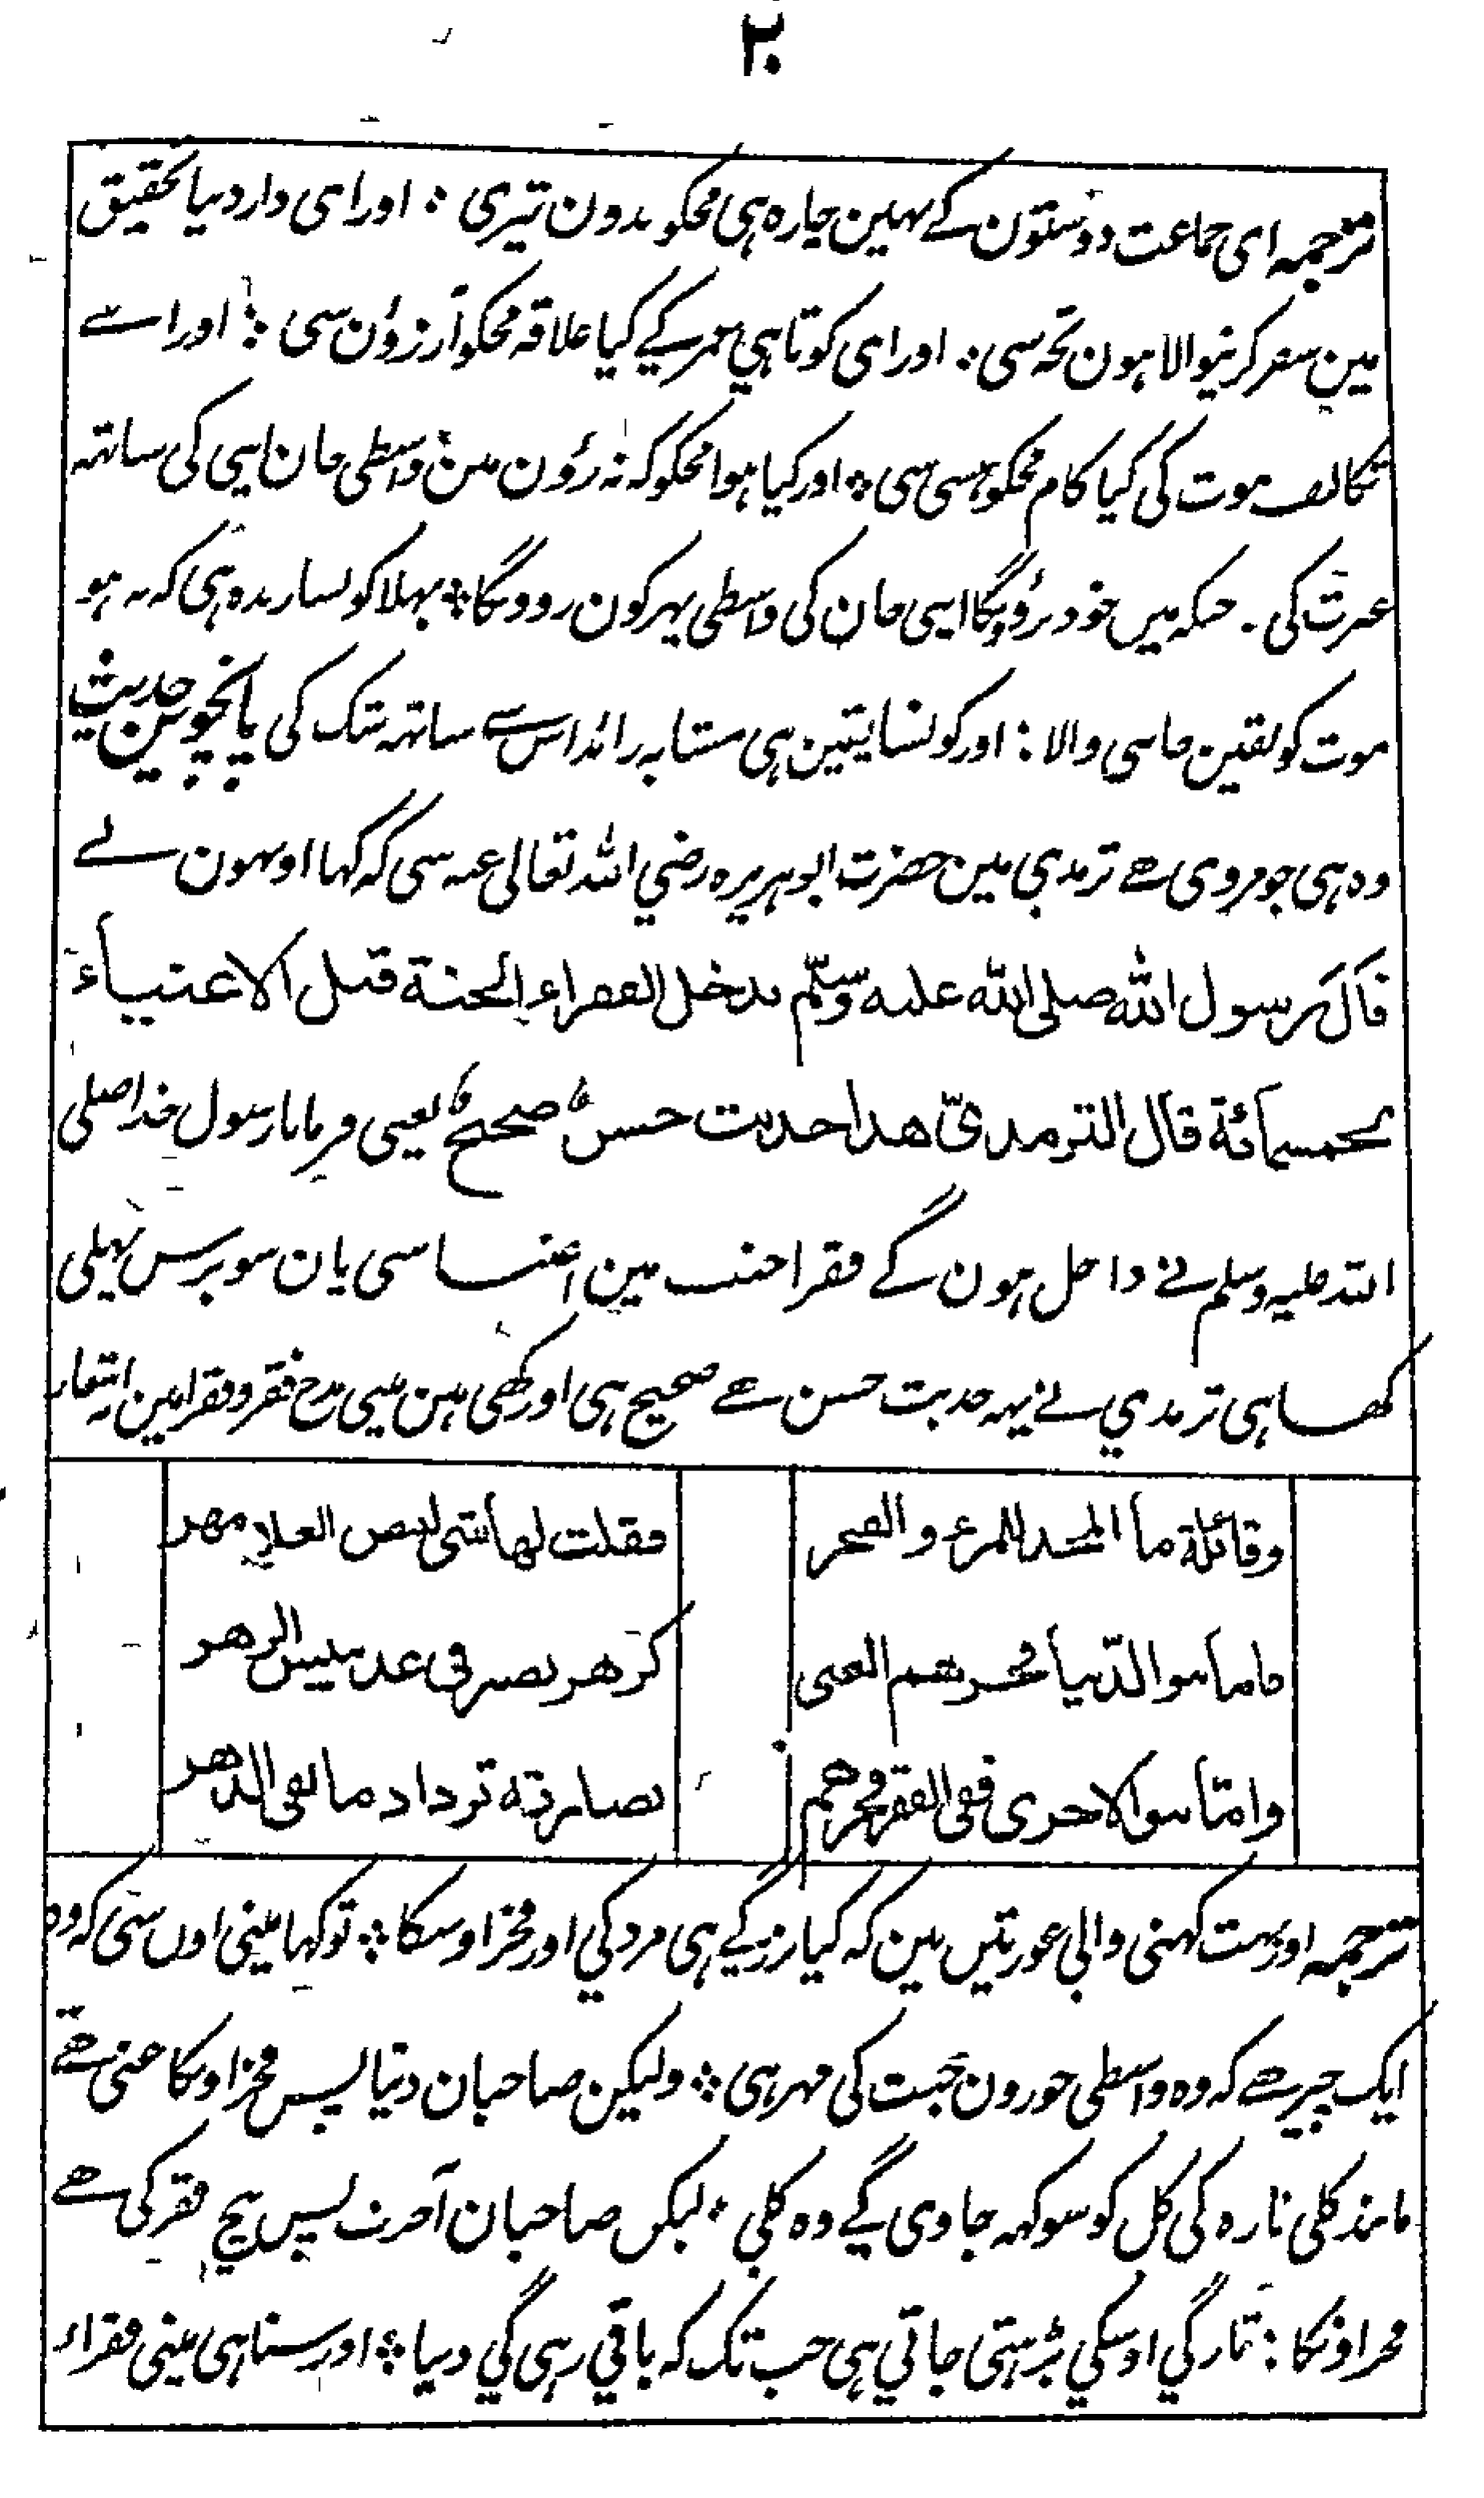 ۲۰
ترجمہ ای جماعت دوستون کے نہین چارہ ہی مجکو بدون تیری : اور ای دار دنیا تحقیق
مین سفر کرنیوالا ہون تجہ سی : اور ای کوتاہی عمر کے کیا علاقہ مجکو آرزوٗن سی : اور اے
تکالیف موت کی کیا کام مجکو ہنسی سی : اور کیا ہوا مجکو کہ نہ رؤن مین واسطی جان اپنی کی ساتہہ
عبرت کی . جبکہ مین خود نرؤنگا اپنی جان کی واسطی پہر کون روویگا : بہلا کونسا بندہ ہی کہ نہ ہو
موت کو یقین جاننی والا : اور کونسا یقین ہی مشابہ زائد اس سے ساتہہ شک کی پانچوین حدیث
وہ ہی جو مروی ہے ترمذی مین حضرت ابوہریرہ رضی اللہ تعالی عنہ سی کہ کہا اونہون نے
قال رسول اللہ صلی اللہ علیہ وسلّم یدخل الفقراء الجنة قبل الاغنیاء
بخمسمائة قال الترمذیّ هذا حدیث حسنٌ صحیحٌ یعنی فرمایا رسول خدا صلی
اللہ علیہ وسلم نے داخل ہون گے فقرا جنت مین اغنیا سی پان سو برس پہلی
کہا ہی ترمذی نے یہہ حدیث حسن ہے صحیح ہی اور کہی ہین مینی مدح فقر و فقرا مین اشعار
وقائلة ما المجد للمرء والفخر
فقلت لها شی لبیض العلا مهر
فاما بنو الدّنیا ففخرهم الغنی
کزهر نضیر فی غد ییبس الزهر
وامّا بنو الاخری ففی الفقر فخرهم
نضارته تزداد ما بقی الدهر
ترجمہ اور بہت کہنی والی عورتین ہین کہ کیا بزرگے ہی مرد کی اور فخر اوسکا : تو کہا مینی اون سی کہ وہ
ایک چیز ہے کہ وہ واسطی حورون جنت کی مہر ہی : ولیکن صاحبان دنیا پس فخر اونکا غنی ہے
مانند کلی تازہ کی کل کو سوکہہ جاوی گے وہ کلی : لیکن صاحبان آخرت پس بیچ فقر کی ہے
فخر اونکا : تازگی اوسکی بڑہتی جاتی ہی جب تک کہ باقی رہی گی دنیا : اور سنا ہی مینی فقراء